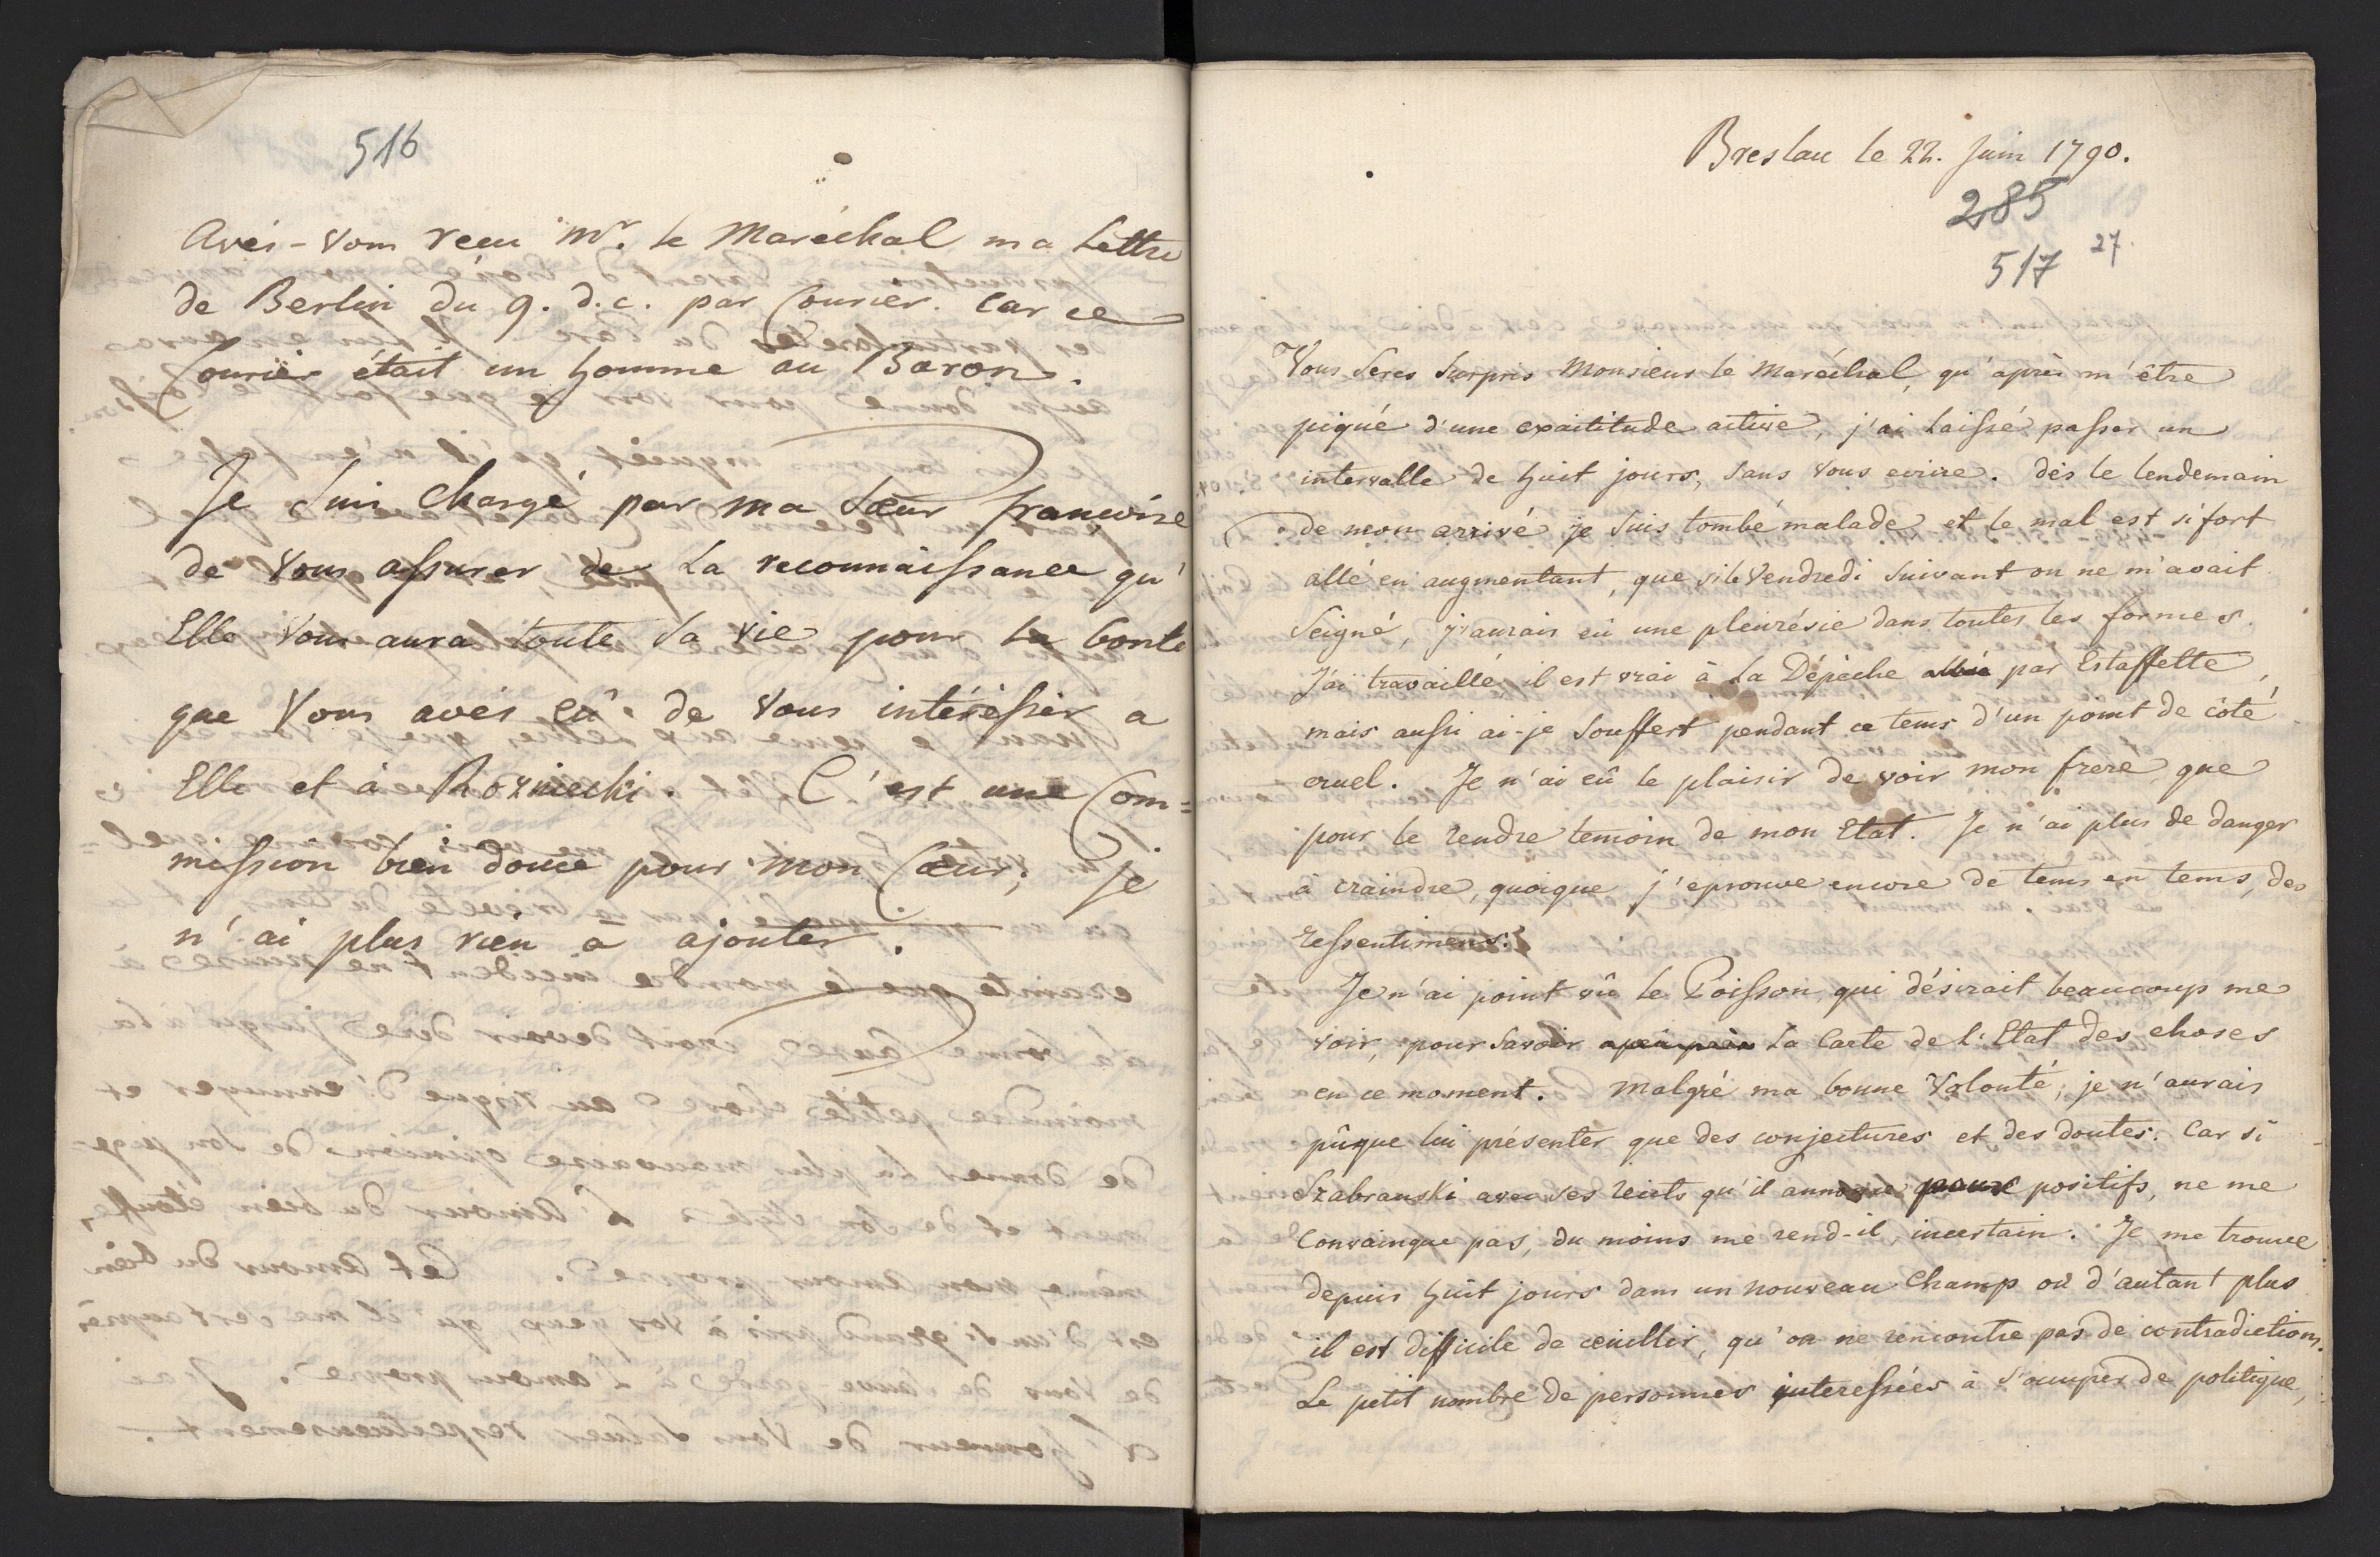 516
Avés-Vous reçu Mr. le Maréchal ma Lettre
de Berlin du 9. d.c. par Courier. Car ce
Courier était un homme au Baron.
Je suis chargé par ma Sœur françoise
de Vous assurer de la reconnaissance qu'
Elle Vous aura toute sa vie pour la bonté
que Vous avés eû de Vous intéresser a
Elle et à Rozniecki. C'est une Com=
mission bien douce pour mon Cœur; je
n'ai plus rien à ajouter.
Breslau le 22. Juin 1790.
285
517 27.
Vous serés surpris Monsieur le Maréchal, qu'après m'être
piqué d'une exactitude active, j'ai laissé passer un
intervalle de huit jours, sans Vous ecrire. dès le lendemain
de mon arrivé je suis tombé malade et le mal est si fort
allé en augmentant, que si le Vendredi suivant on ne m'avait
seigné, j'aurais eû une pleurésie dans toutes les formes.
J'ai travaillé, il est vrai à la Dépêche par Estaffette,
mais aussi ai-je souffert pendant ce tems d'un point de côté
cruel. Je n'ai eû le plaisir de voir mon frere, que
pour le rendre temoin de mon Etat. Je n'ai plus de danger
à craindre, quoique j'eprouve encore de tems en tems, des
ressentimens.
Je n'ai point vû le Poisson, qui désirait beaucoup me
voir, pour savoir apeuprès la Carte de l'Etat des choses
en ce moment. Malgré ma bonne Volonté, je n'aurais
pû que lui présenter que des conjectures et des doutes. Car si
Szabranski avec ses recits qu'il annonce positifs, ne me
Convainque pas, du moins me rend-il incertain. Je me trouve
depuis huit jours dans un nouveau Champ où d'autant plus
il est difficile de cœuillir, qu'on ne rencontre pas de contradictions.
Le petit nombre de personnes interessées à s'occuper de politique,